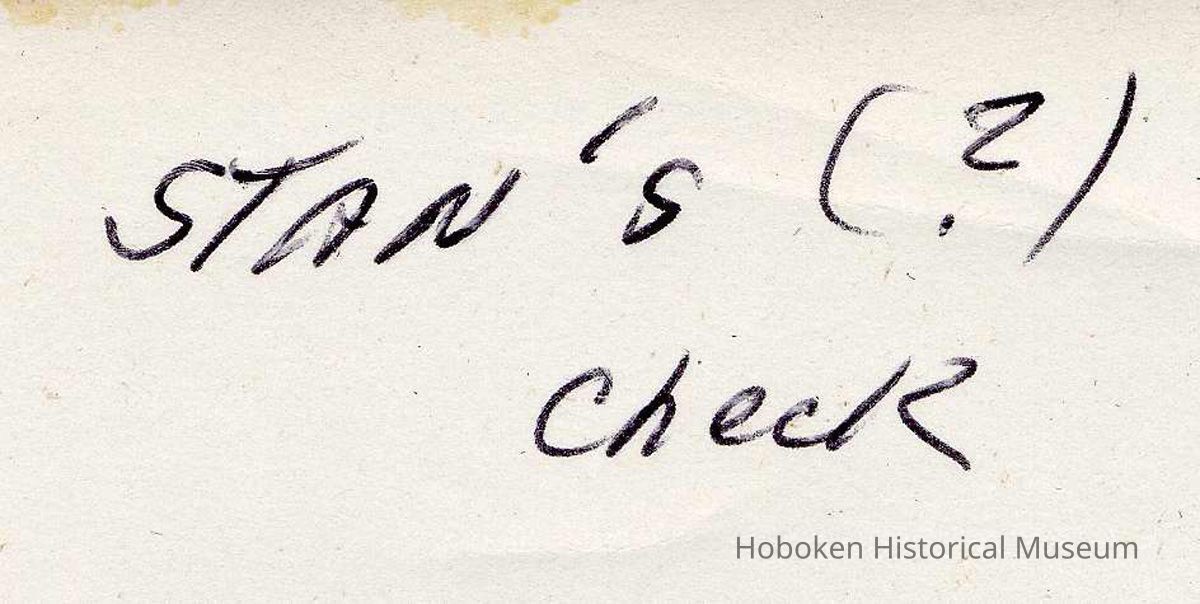 STAN's (?)
check
Hoboken Historical Museum